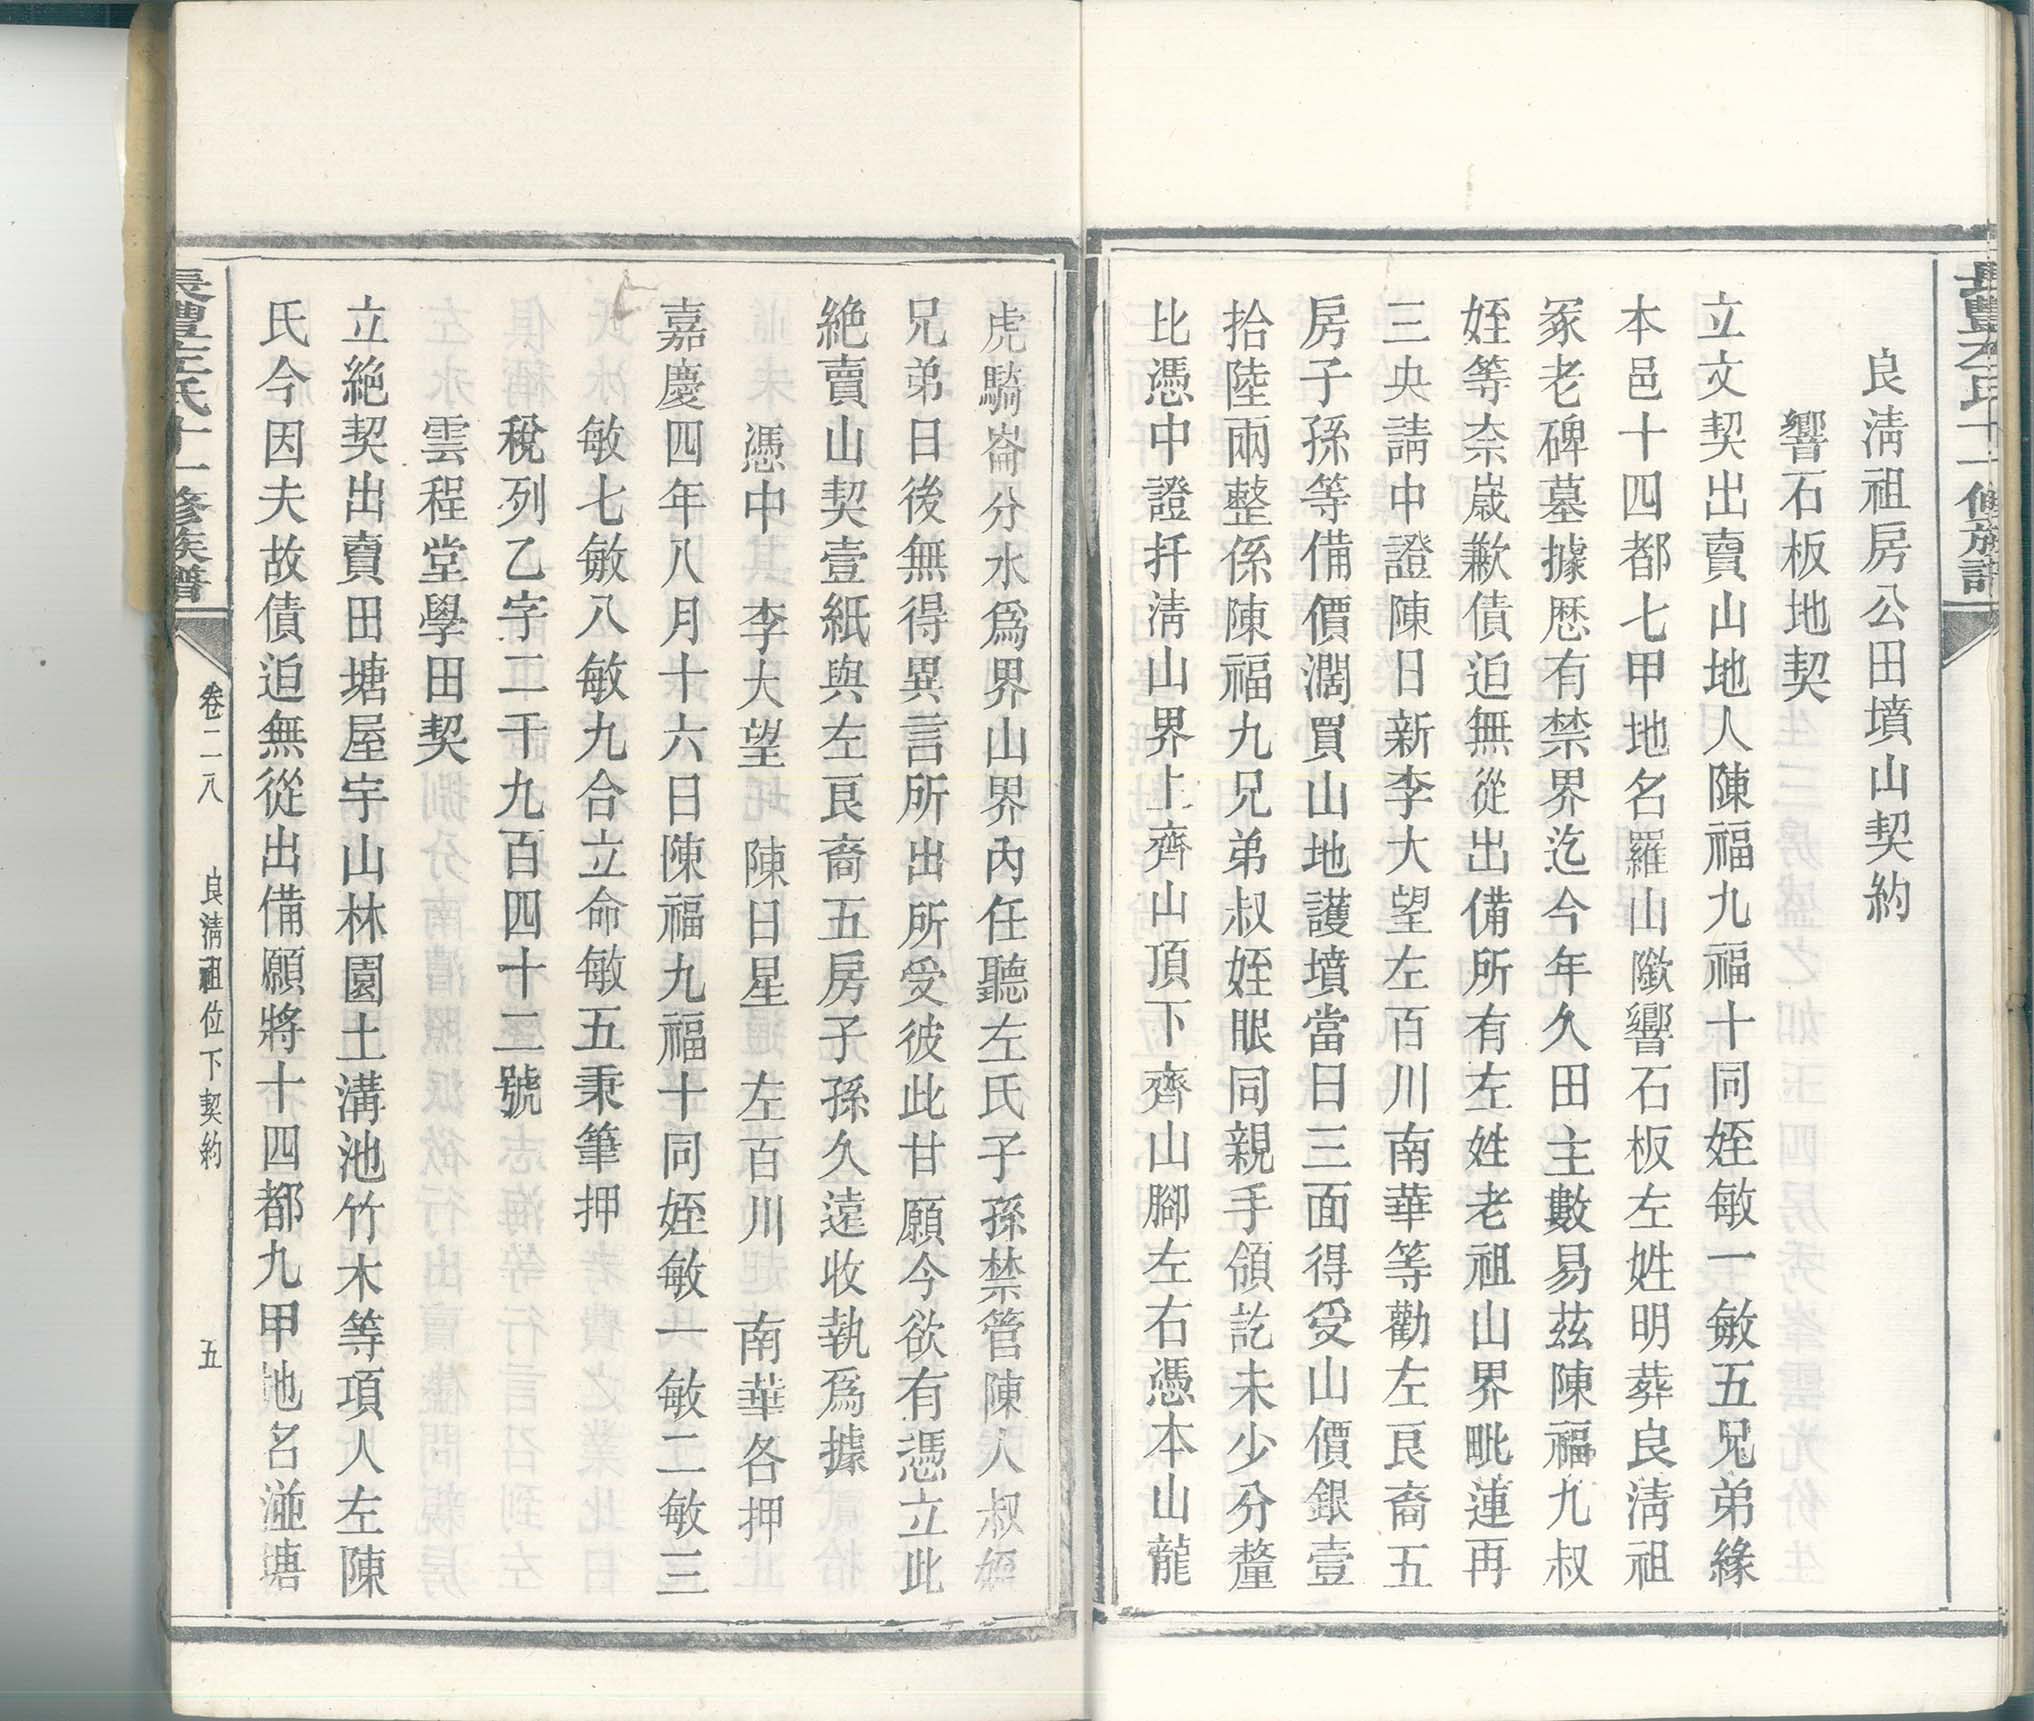 長豐左氏十一修族譜
良淸祖房公田墳山契約
響石板地契
立文契出賣山地人陳福九福十同姪敏一敏五兄弟緣
本邑十四都七甲地名羅山隞響石板左姓明葬良淸祖
冢老碑墓據歷有禁界迄今年久田主數易茲陳福九叔
姪等奈歲歉債迫無從出備所有左姓老祖山界毗蓮再
三央請中證陳日新李大望左百川南華等勸左艮裔五
房子孫等備價濶買山地護墳當日三面得受山價銀壹
拾陸兩整係陳福九兄弟叔姪眼同親手領訖未少分釐
比憑中證扦淸山界上齊山頂下齊山腳左右憑本山龍
虎騎崙分水爲界山界內任聽左氏子孫禁管陳人叔姪
兄弟日後無得異言所出所受彼此甘願今欲有憑立此
絶賣山契壹紙與左艮裔五房子孫久遠收執爲據
憑中　李大望　陳日星　左百川　南華各押
嘉慶四年八月十六日陳福九福十同姪敏一敏二敏三
敏七敏八敏九合立命敏五秉筆押
稅列乙字二千九百四十二號
雲程堂學田契
立絕契出賣田塘屋宇山林園土溝池竹木等項人左陳
氏今因夫故債迫無從出備願將十四都九甲地名湴塘
長豐左氏十一修族譜
卷二八　良淸祖位下契約　五